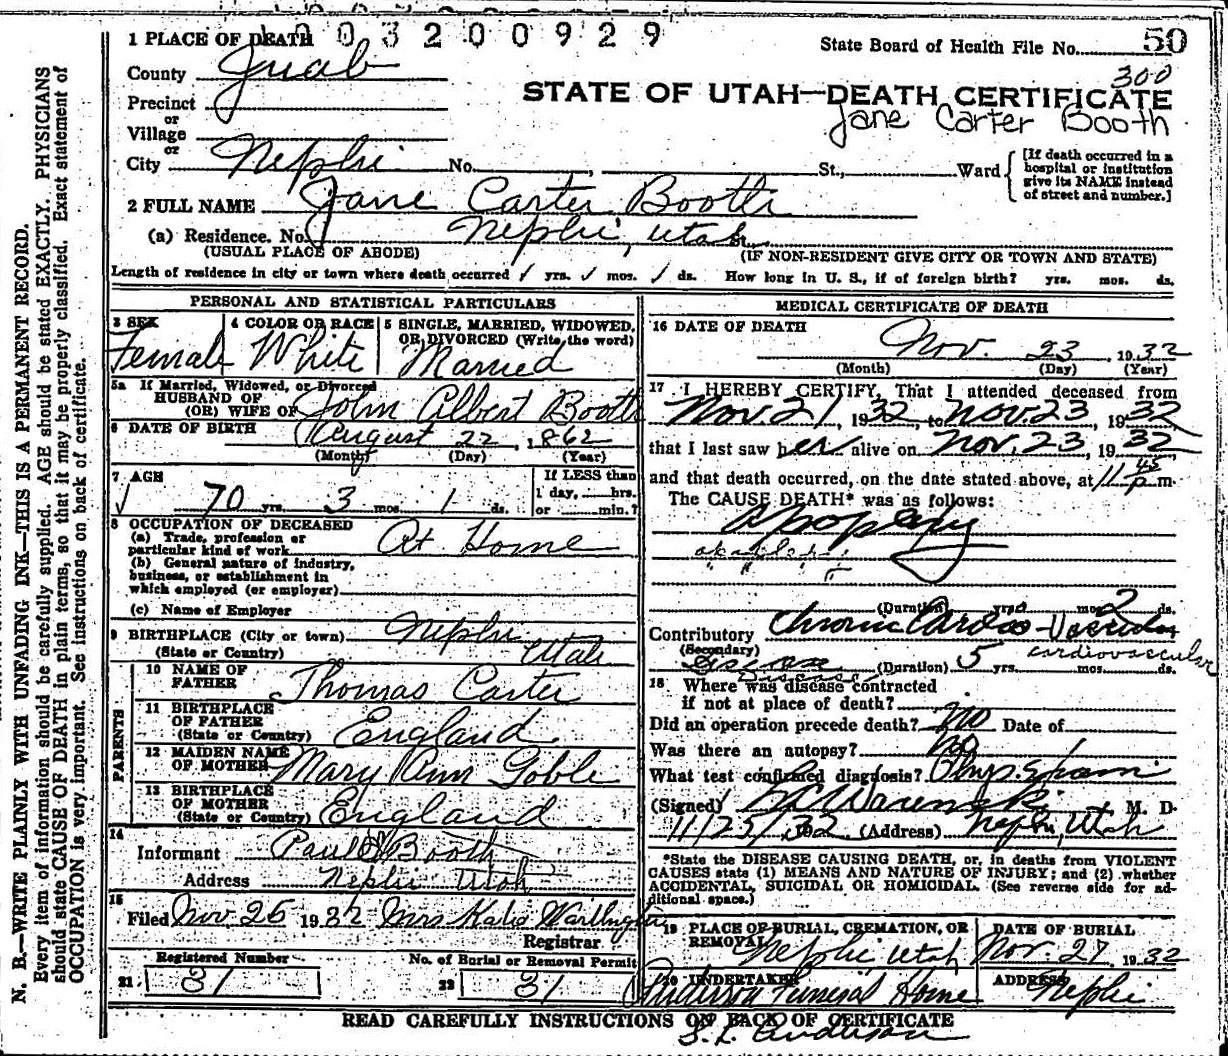 1 PLACE OF DEATH 003200929 State Board of Health File No. 50
County Juab
300
STATE OF UTAH—DEATH CERTIFICATE
Precinct
or
Village
or
Jane Carter Booth
City Nephi No. St., Ward [If death occurred in a hospital or institution give its NAME instead of street and number.]
2 FULL NAME Jane Carter Booth
(a) Residence. No. Nephi, Utah St.
(USUAL PLACE OF ABODE) (IF NON-RESIDENT GIVE CITY OR TOWN AND STATE)
Length of residence in city or town where death occurred yrs. mos. ds. How long in U. S., if of foreign birth? yrs. mos. ds.
PERSONAL AND STATISTICAL PARTICULARS
3 SEX
Female
4 COLOR OR RACE
White
5 SINGLE, MARRIED, WIDOWED, OR DIVORCED (Write the word)
Married
5a If Married, Widowed, or Divorced
HUSBAND OF
(OR) WIFE OF John Albert Booth
6 DATE OF BIRTH August 22, 1862
(Month) (Day) (Year)
7 AGE
70 yrs. 3 mos. 1 ds.
If LESS than
1 day, hrs.
or min.?
8 OCCUPATION OF DECEASED
(a) Trade, profession or
particular kind of work At Home
(b) General nature of industry,
business, or establishment in
which employed (or employer)
(c) Name of Employer
9 BIRTHPLACE (City or town) Nephi
(State or Country) Utah
PARENTS
10 NAME OF
FATHER Thomas Carter
11 BIRTHPLACE
OF FATHER
(State or Country) England
12 MAIDEN NAME
OF MOTHER Mary Ann Goble
13 BIRTHPLACE
OF MOTHER
(State or Country) England
14
Informant Paul Booth
Address Nephi Utah
15
Filed Nov. 26 1932 Mrs Kate Worthington
Registrar
Registered Number No. of Burial or Removal Permit
21 31 22 31
MEDICAL CERTIFICATE OF DEATH
16 DATE OF DEATH
Nov. 23, 1932
(Month) (Day) (Year)
17 I HEREBY CERTIFY, That I attended deceased from
Nov. 21, 1932, to Nov. 23, 1932
that I last saw her alive on Nov. 23, 1932
and that death occurred, on the date stated above, at 11 45 p.m.
The CAUSE DEATH* was as follows:
Apoplexy
(Duration) yrs. mos. 2 ds.
Contributory Chronic Cardio-Vascular
(Secondary) cardiovascular
disease (Duration) 5 yrs. mos. ds.
Disease
18 Where was disease contracted
if not at place of death?
Did an operation precede death? No Date of
Was there an autopsy? No
What test confirmed diagnosis? Phys. Exam
(Signed) M. D.
11/25/32 (Address) Nephi, Utah
*State the DISEASE CAUSING DEATH, or, in deaths from VIOLENT
CAUSES state (1) MEANS AND NATURE OF INJURY; and (2) whether
ACCIDENTAL, SUICIDAL OR HOMICIDAL. (See reverse side for ad-
ditional space.)
19 PLACE OF BURIAL, CREMATION, OR
REMOVAL Nephi Utah
DATE OF BURIAL
Nov. 27, 1932
20 UNDERTAKER
Anderson Funeral Home
ADDRESS
Nephi
READ CAREFULLY INSTRUCTIONS ON BACK OF CERTIFICATE
S. L. Anderson
N. B.—WRITE PLAINLY WITH UNFADING INK—THIS IS A PERMANENT RECORD.
Every item of information should be carefully supplied. AGE should be stated EXACTLY. PHYSICIANS
should state CAUSE OF DEATH in plain terms, so that it may be properly classified. Exact statement of
OCCUPATION is very important. See instructions on back of certificate.